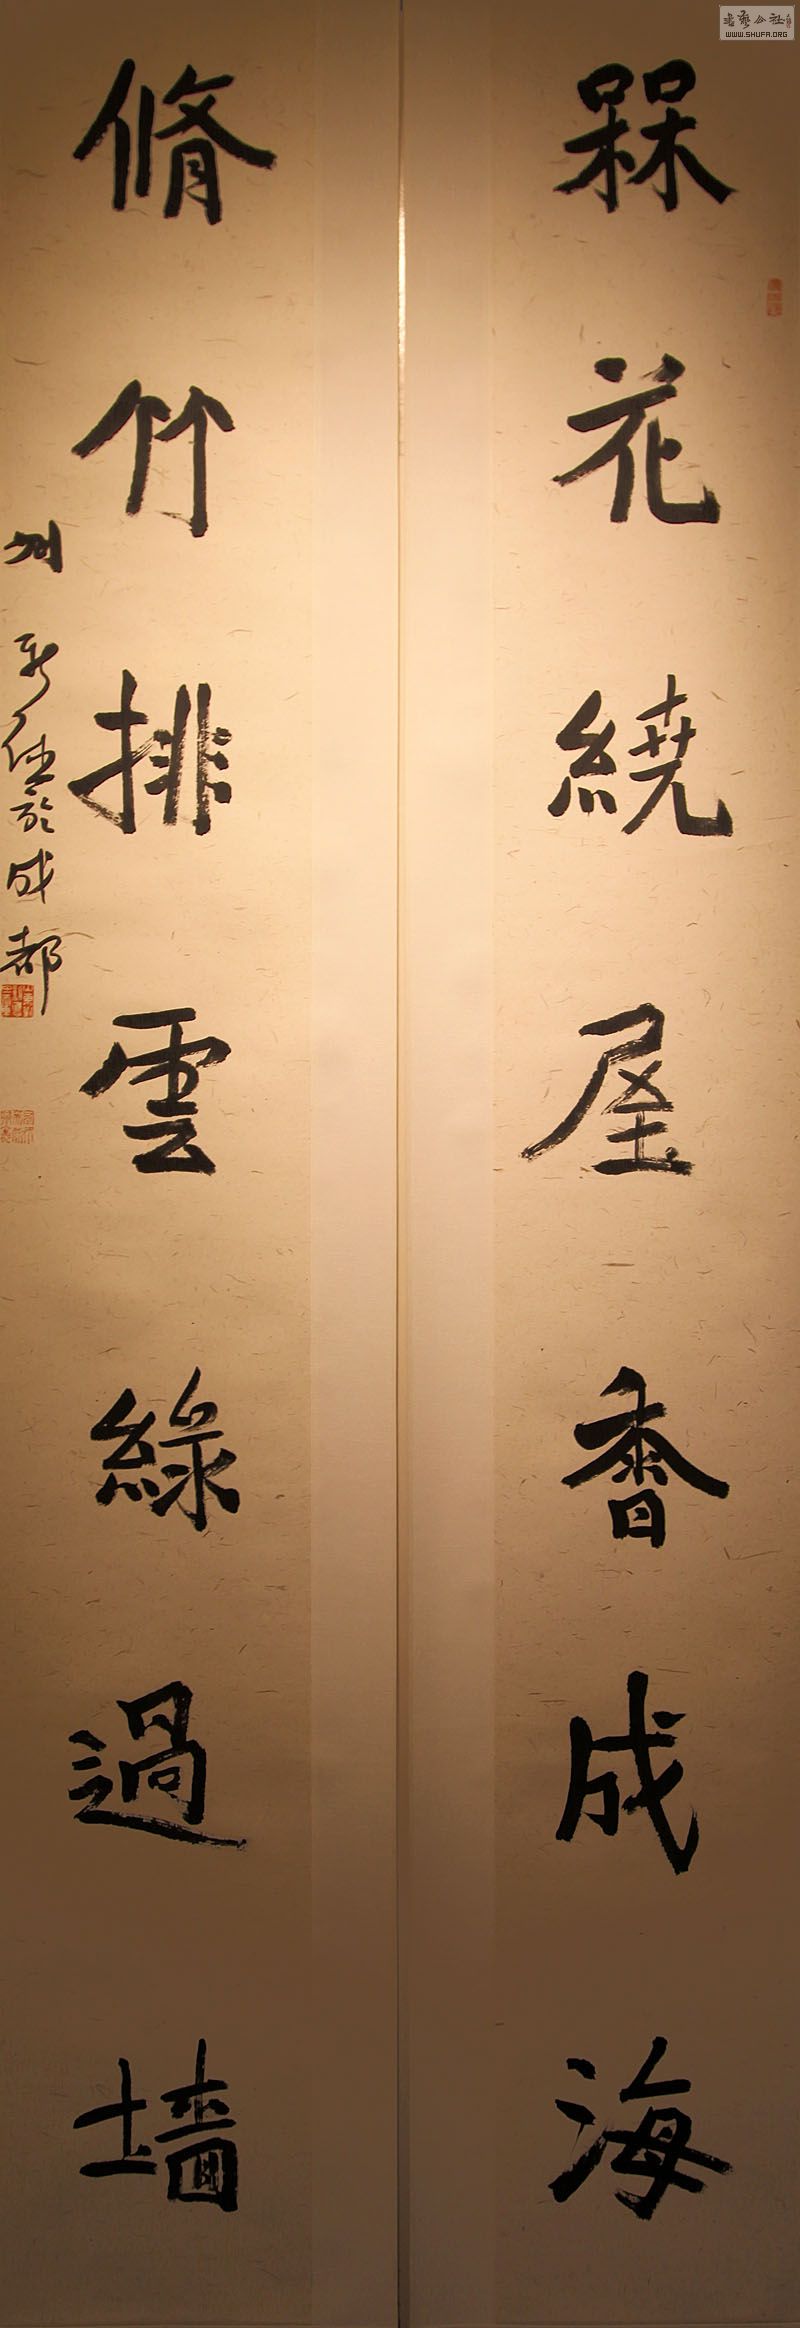 槑花繞屋香成海
脩竹排雲綠過墻
刘新德於成都
书艺公社
WWW.SHUFA.ORG